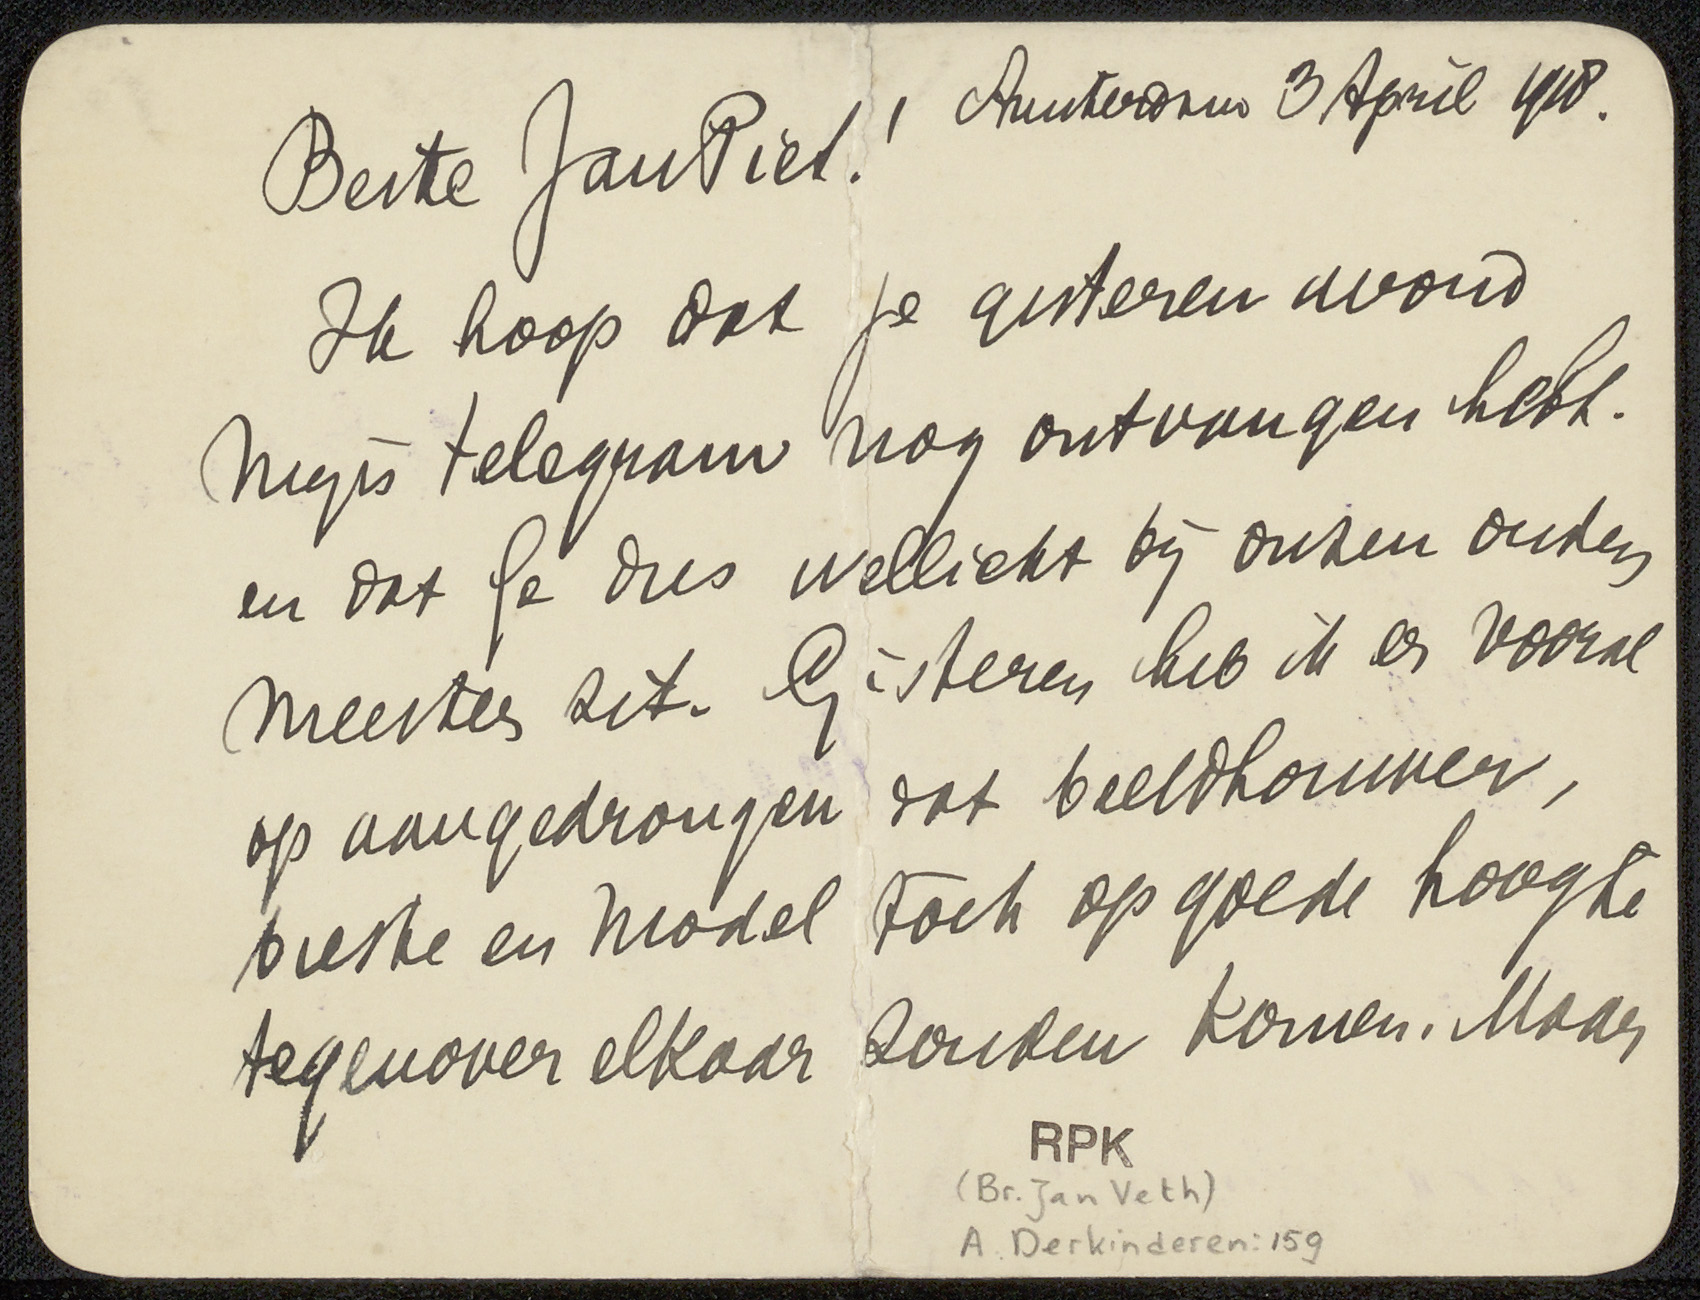 Amsterdam 3 April 1918.
Beste Jan Piet!
Ik hoop dat je gisteren avond
mijn telegram nog ontvangen hebt.
en dat je dus wellicht bij onzen ouden
meester zit. Gisteren heb ik er vooral
op aangedrongen dat beeldhouwer,
buste en model toch op goede hoogte
tegenover elkaar zouden komen. Maar
RPK
(Br. Jan Veth)
A. Derkinderen: 159